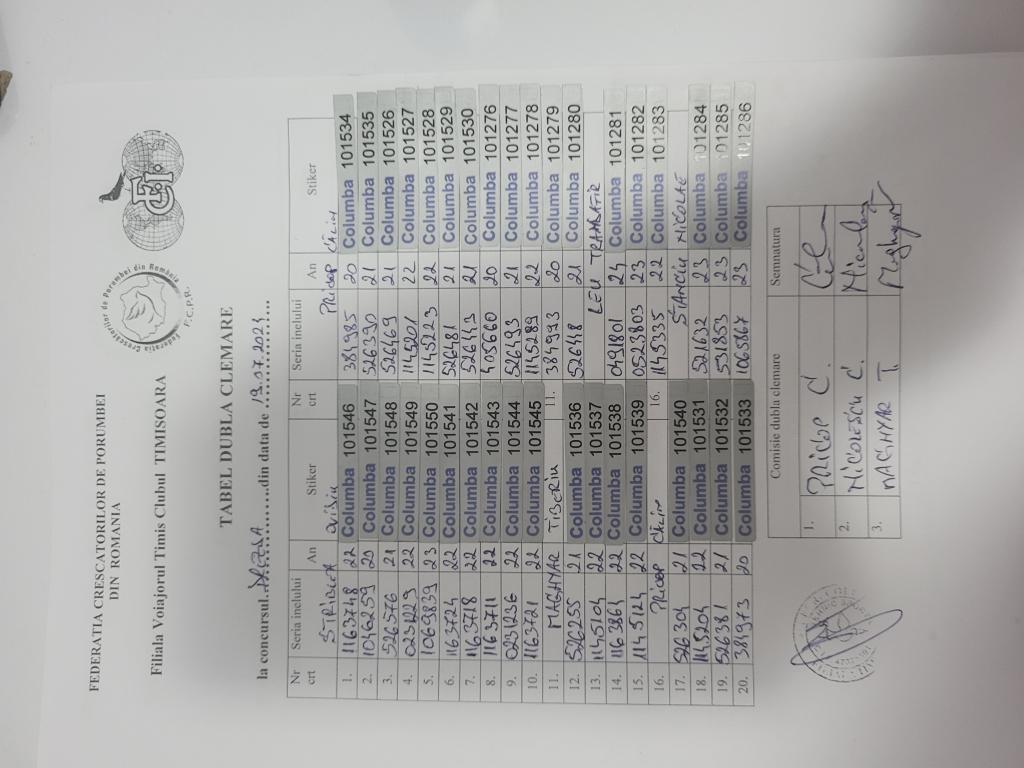 FEDERATIA CRESCATORILOR DE PORUMBEI
DIN ROMANIA
Filiala Voiajorul Timis Clubul TIMISOARA
Federatia Crescatorilor de Porumbei din România
F.C.P.R.
TABEL DUBLA CLEMARE
la concursul..........din data de 19.07.2024
Nr crt Seria inelului An Stiker Nr crt Seria inelului An Stiker
Pricop Călin
1. 1163748 22 Columba 101546 381985 20 Columba 101534
2. 1046259 20 Columba 101547 526390 21 Columba 101535
3. 526576 21 Columba 101548 526469 21 Columba 101526
4. 0231229 22 Columba 101549 1145201 22 Columba 101527
5. 1069839 23 Columba 101550 1145223 22 Columba 101528
6. 1163724 22 Columba 101541 526481 21 Columba 101529
7. 1163718 22 Columba 101542 526443 21 Columba 101530
8. 1163711 22 Columba 101543 405660 20 Columba 101276
9. 0231236 22 Columba 101544 526493 21 Columba 101277
10. 1163721 22 Columba 101545 1145289 22 Columba 101278
11. MAGHYAR TIBERIU 11. 384993 20 Columba 101279
12. 526255 21 Columba 101536 526448 21 Columba 101280
13. 1145104 22 Columba 101537 LEU TRANDAFIR
14. 1163864 22 Columba 101538 0491801 24 Columba 101281
15. 1145124 22 Columba 101539 0523803 23 Columba 101282
16. Pricop Călin 16. 1145335 22 Columba 101283
17. 526304 21 Columba 101540 STANCIU NICOLAE
18. 1145204 22 Columba 101531 521632 23 Columba 101284
19. 526381 21 Columba 101532 531853 23 Columba 101285
20. 384373 20 Columba 101533 1065867 23 Columba 101286
Comisie dubla clemare Semnatura
1. PRICOP C.
2. NICOLESCU C.
3. MAGHYAR T.